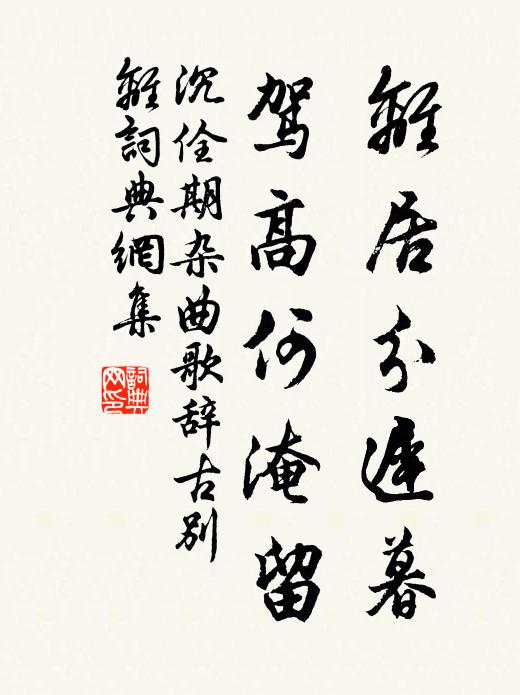 離居分遲暮
駕高何淹留
沉佺期杂曲歌辞古别
離詞典網集
詞典
网印